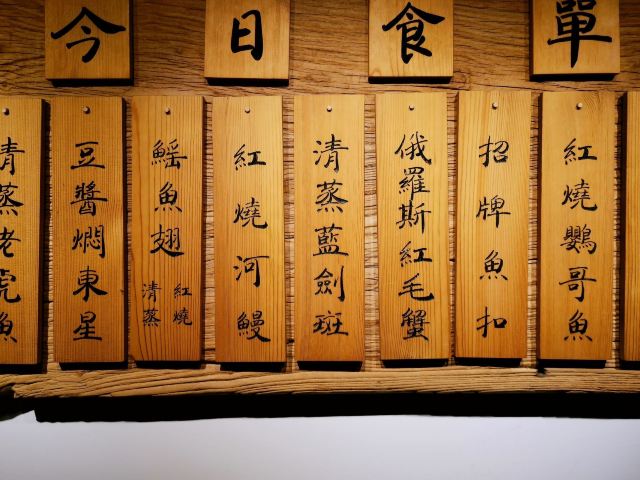 今日食單
清蒸老虎魚
豆醬燜東星
鰩魚翅
清蒸
紅燒
紅燒河鰻
清蒸藍劍斑
俄羅斯紅毛蟹
招牌魚扣
紅燒鸚哥魚